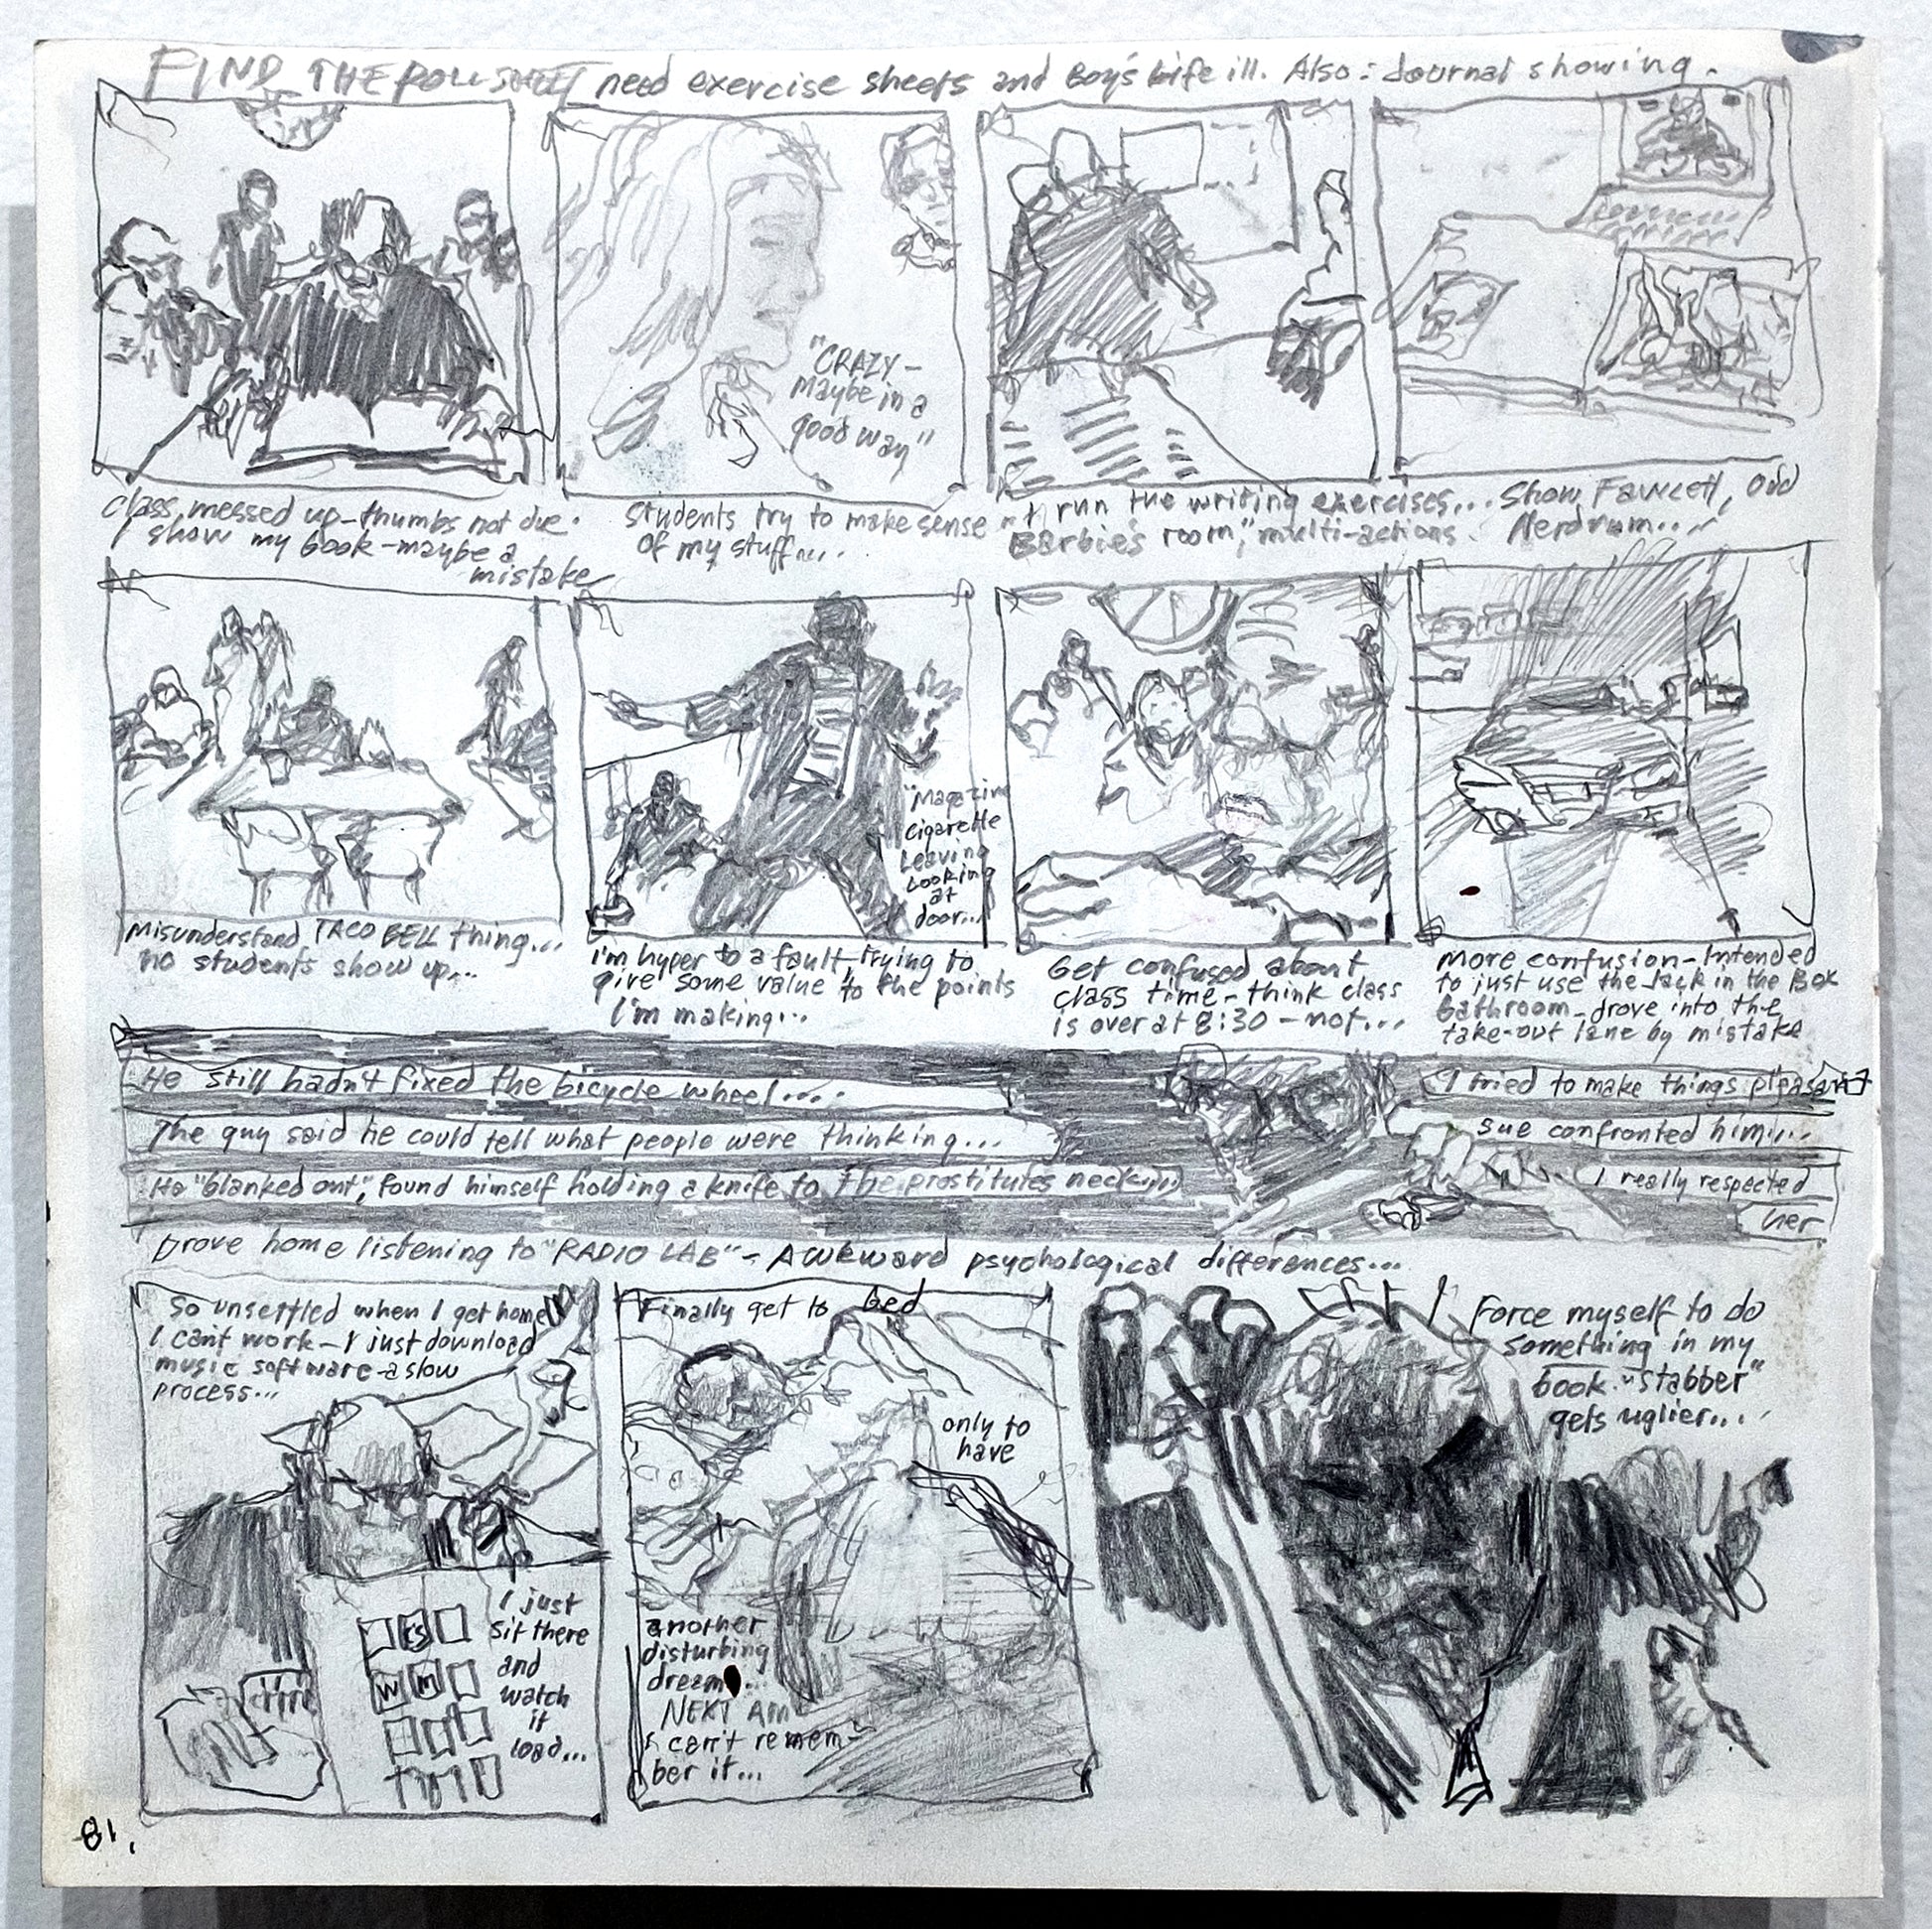 FIND THE ROLL SHEET need exercise sheets and Boy's Life ill. Also: Journal showing.
"CRAZY-
Maybe in a
good way"
class, messed up-thumbs not due.
I show my book-maybe a
mistake
Students try to make sense
of my stuff...
I run the writing exercises...
Barbie's room," multi-actions.
Show Fawcett, Odd
Nerdrum...
"Magazine
cigarette
Leaving
Looking
at
door...
Misunderstand TACO BELL thing...
no students show up...
I'm hyper to a fault-trying to
give some value to the points
I'm making...
Get confused about
class time-think class
is over at 8:30-not...
More confusion-Intended
to just use the Jack in the Box
Bathroom-drove into the
take-out lane by mistake
He still hadn't fixed the bicycle wheel....
The guy said he could tell what people were thinking...
He "blanked out", found himself holding a knife to the prostitutes neck....
I tried to make things pleasant
Sue confronted him....
I really respected
her
Drove home listening to "RADIO LAB"- Awkward psychological differences...
So unsettled when I get home
I can't work-I just download
music software-a slow
process...
I just
sit there
and
watch
it
load...
Finally get to Bed
only to
have
another
disturbing
dream...
NEXT AM
I can't remem-
ber it...
Force myself to do
something in my
book. "Stabber"
gets uglier...
81.